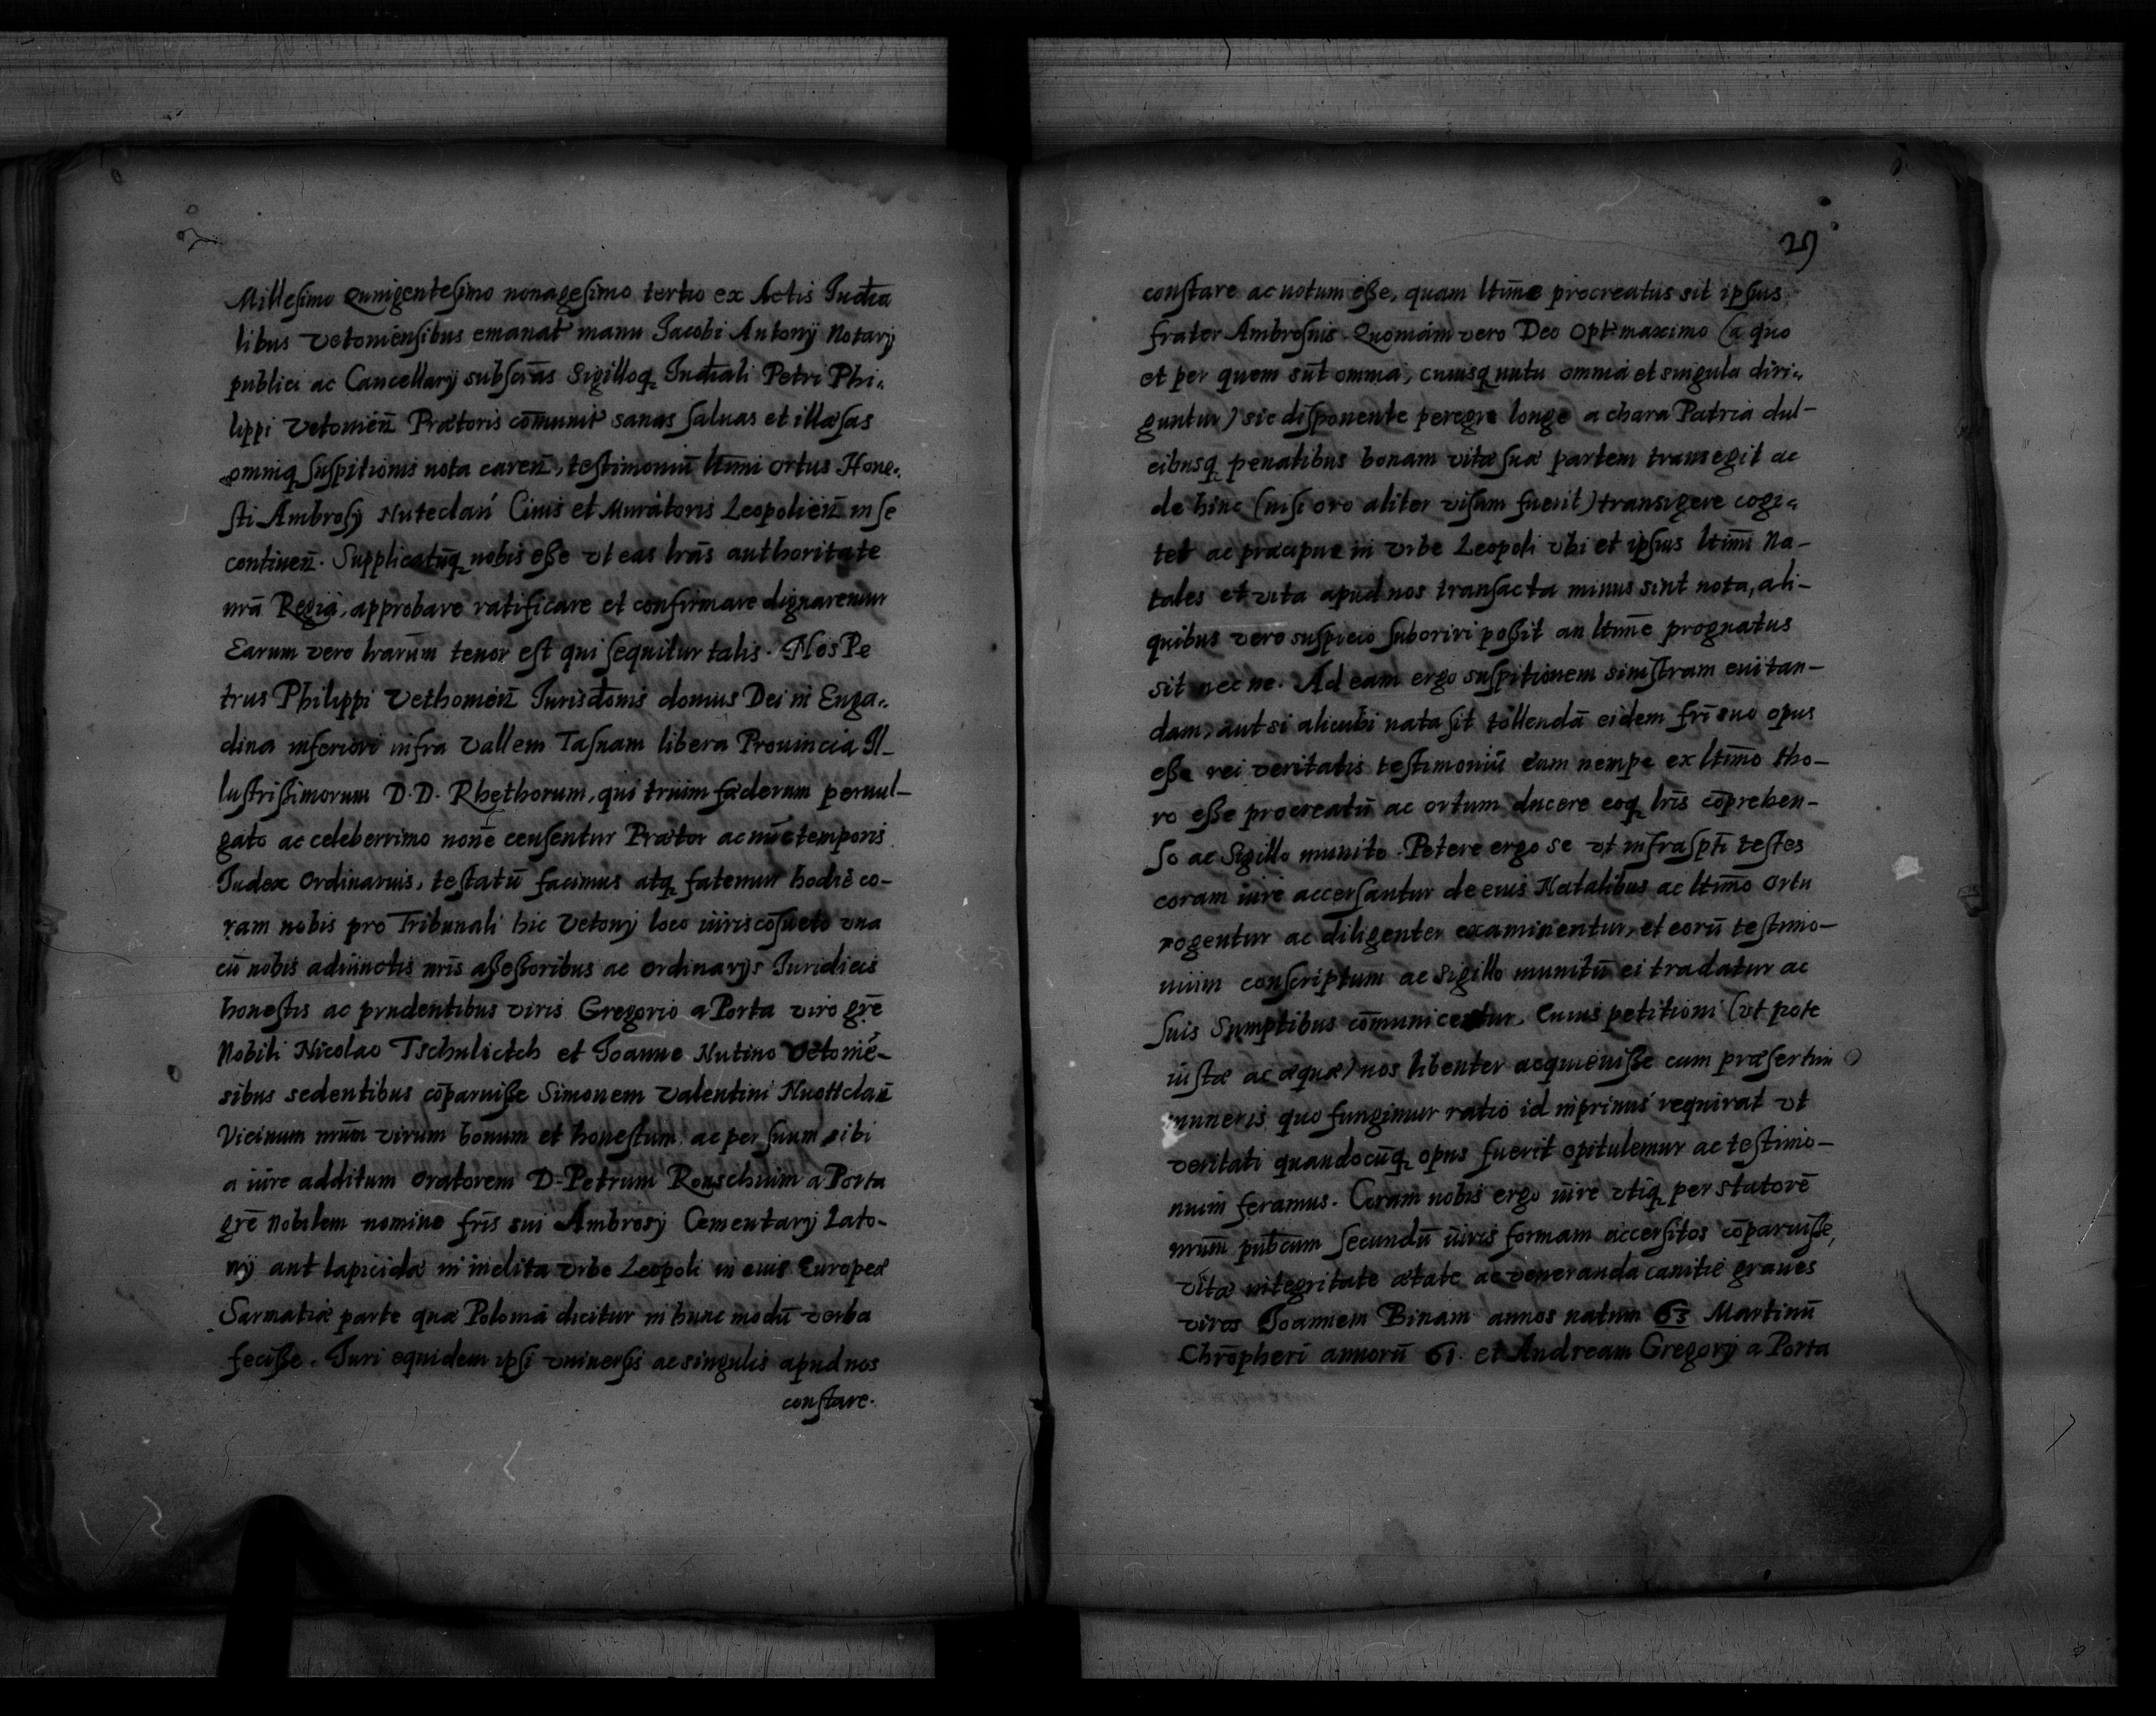 Millesimo Quingentesimo nonagesimo tertio ex Actis Judicia
libus Vetoniensibus emanat manu Jacobi Antonij Notarij
publici ac Cancellarij subscrās Sigilloq Judiciali Petri Phi„
lippi Vetonień Prætoris cōmunit sanas saluas et illæsas
omniq suspitionis nota careń, testimoniū ltīmi ortus Hone„
sti Ambrosij Nuteclań Ciuis et Muratoris Leopolień in se
contineń. Supplicatūq nobis esse vt eas lrās authoritate
nrā Regia, approbare ratificare et confirmare dignaremur
Earum vero lrarūm tenor est qui sequitur talis. Nos Pe
trus Philippi Vethomień Jurisdōnis domus Dei in Enga„
dina inferiori infra Vallem Tasnam libera Prouincia Il–
lustrissimorum D.D. Rhethorum, qui trium fæderum peruul–
gato ac celeberrimo noīne censentur Prætor ac nūc temporis
Judex Ordinarius, testatū facimus atq fatemur hodie co–
ram nobis pro Tribunali hic Vetonij loco iuris cōsueto vna
cū nobis adiunctis nrīs assessoribus ac ordinarijs Juridicis
honestis ac prudentibus viris Gregorio a Porta viro gre
Nobili Nicolao Tschulictch et Joanne Nutino Vetonié–
sibus sedentibus cōparuisse Simonem Valentini Nuottclań
Vicinum nrūm virum bonum et honestum ac per suum sibi
a iure additum Oratorem D. Petrum Rouschium a Porta
gre nobilem nomine frīs sui Ambrosij Cementarij Lato–
nij aut lapicidæ in inclita vrbe Leopoli in eius Europeæ
Sarmatiæ parte quæ Polonia dicitur in hunc modū verba
fecisse. Juri equidem ipsi vniuersis ac singulis apud nos
constare.
29
constare ac notum esse, quam ltīme procreatus sit ipsius
frater Ambrosius. Quoniam vero Deo Opt maximo (a quo
et per quem sūt omnia, cuiusq nutu omnia et singula diri„
guntur) sic disponente peregre longe a chara Patria dul–
cibusq penatibus bonam vitæ suæ partem transegit ac
de hinc (nisi oro aliter visum fuerit) transigere cogi„
tet ac præcipue in vrbe Leopoli vbi et ipsius ltīmi Na–
tales et vita apud nos transacta minus sint nota, ali–
quibus vero suspicio suboriri possit an ltīme prognatus
sit nec ne. Ad eam ergo suspitionem sinistram euitan–
dam, aut si alicubi nata sit tollendā eidem frī suo opus
esse rei veritatis testimoniū eum nempe ex ltīmo tho–
ro esse procreatū ac ortum ducere eoq lrīs cōprehen–
so ac Sigillo munito. Petere ergo se vt infraspti testes
coram iure accersantur de eius Natalibus ac ltīmo Ortu
rogentur ac diligenter examinentur, et eorū testimo–
nium conscriptum ac Sigillo munitū ei tradatur ac
suis Sumptibus cōmunicentur. Cuius petitioni (vt pote
iustæ ac æquæ) nos libenter acquieuisse cum præsertim
muneris quo fungimur ratio id inprimis requirat vt
veritati quandocūq opus fuerit opitulemur ac testimo–
nium feramus. Coram nobis ergo iure vtiq per statorē
nrūm pubcum secundū iuris formam accersitos cōparuisse,
vitæ integritate ætate ac veneranda canitie graues
viros Joannem Binam annos natum 63 Martinū
Chrōpheri annorū 61. et Andream Gregorij a Porta